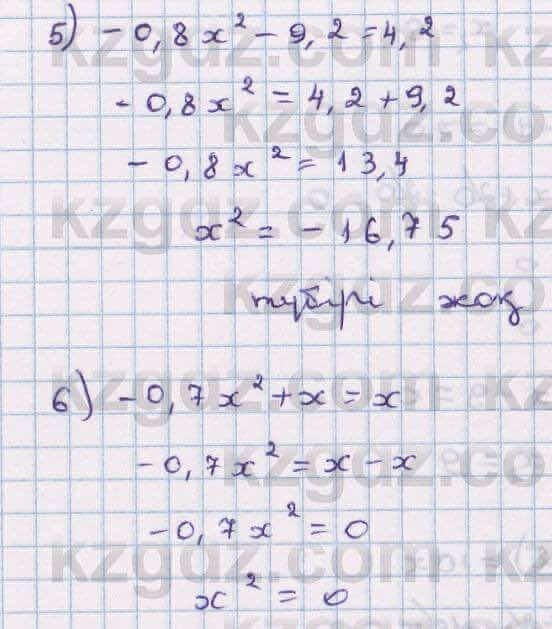 5) -0,8x² - 9,2 = 4,2
-0,8x² = 4,2 + 9,2
-0,8x² = 13,4
x² = -16,75
түбірі жоқ
6) -0,7x² + x = x
-0,7x² = x - x
-0,7x² = 0
x² = 0
kzgdz.com